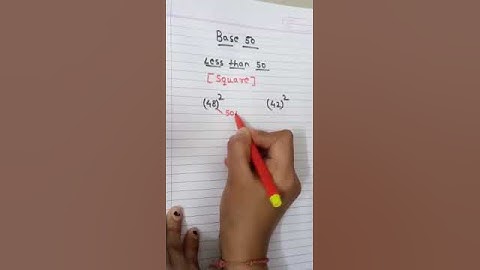 Base 50
Less than 50
[Square]
(48)² (42)²
50